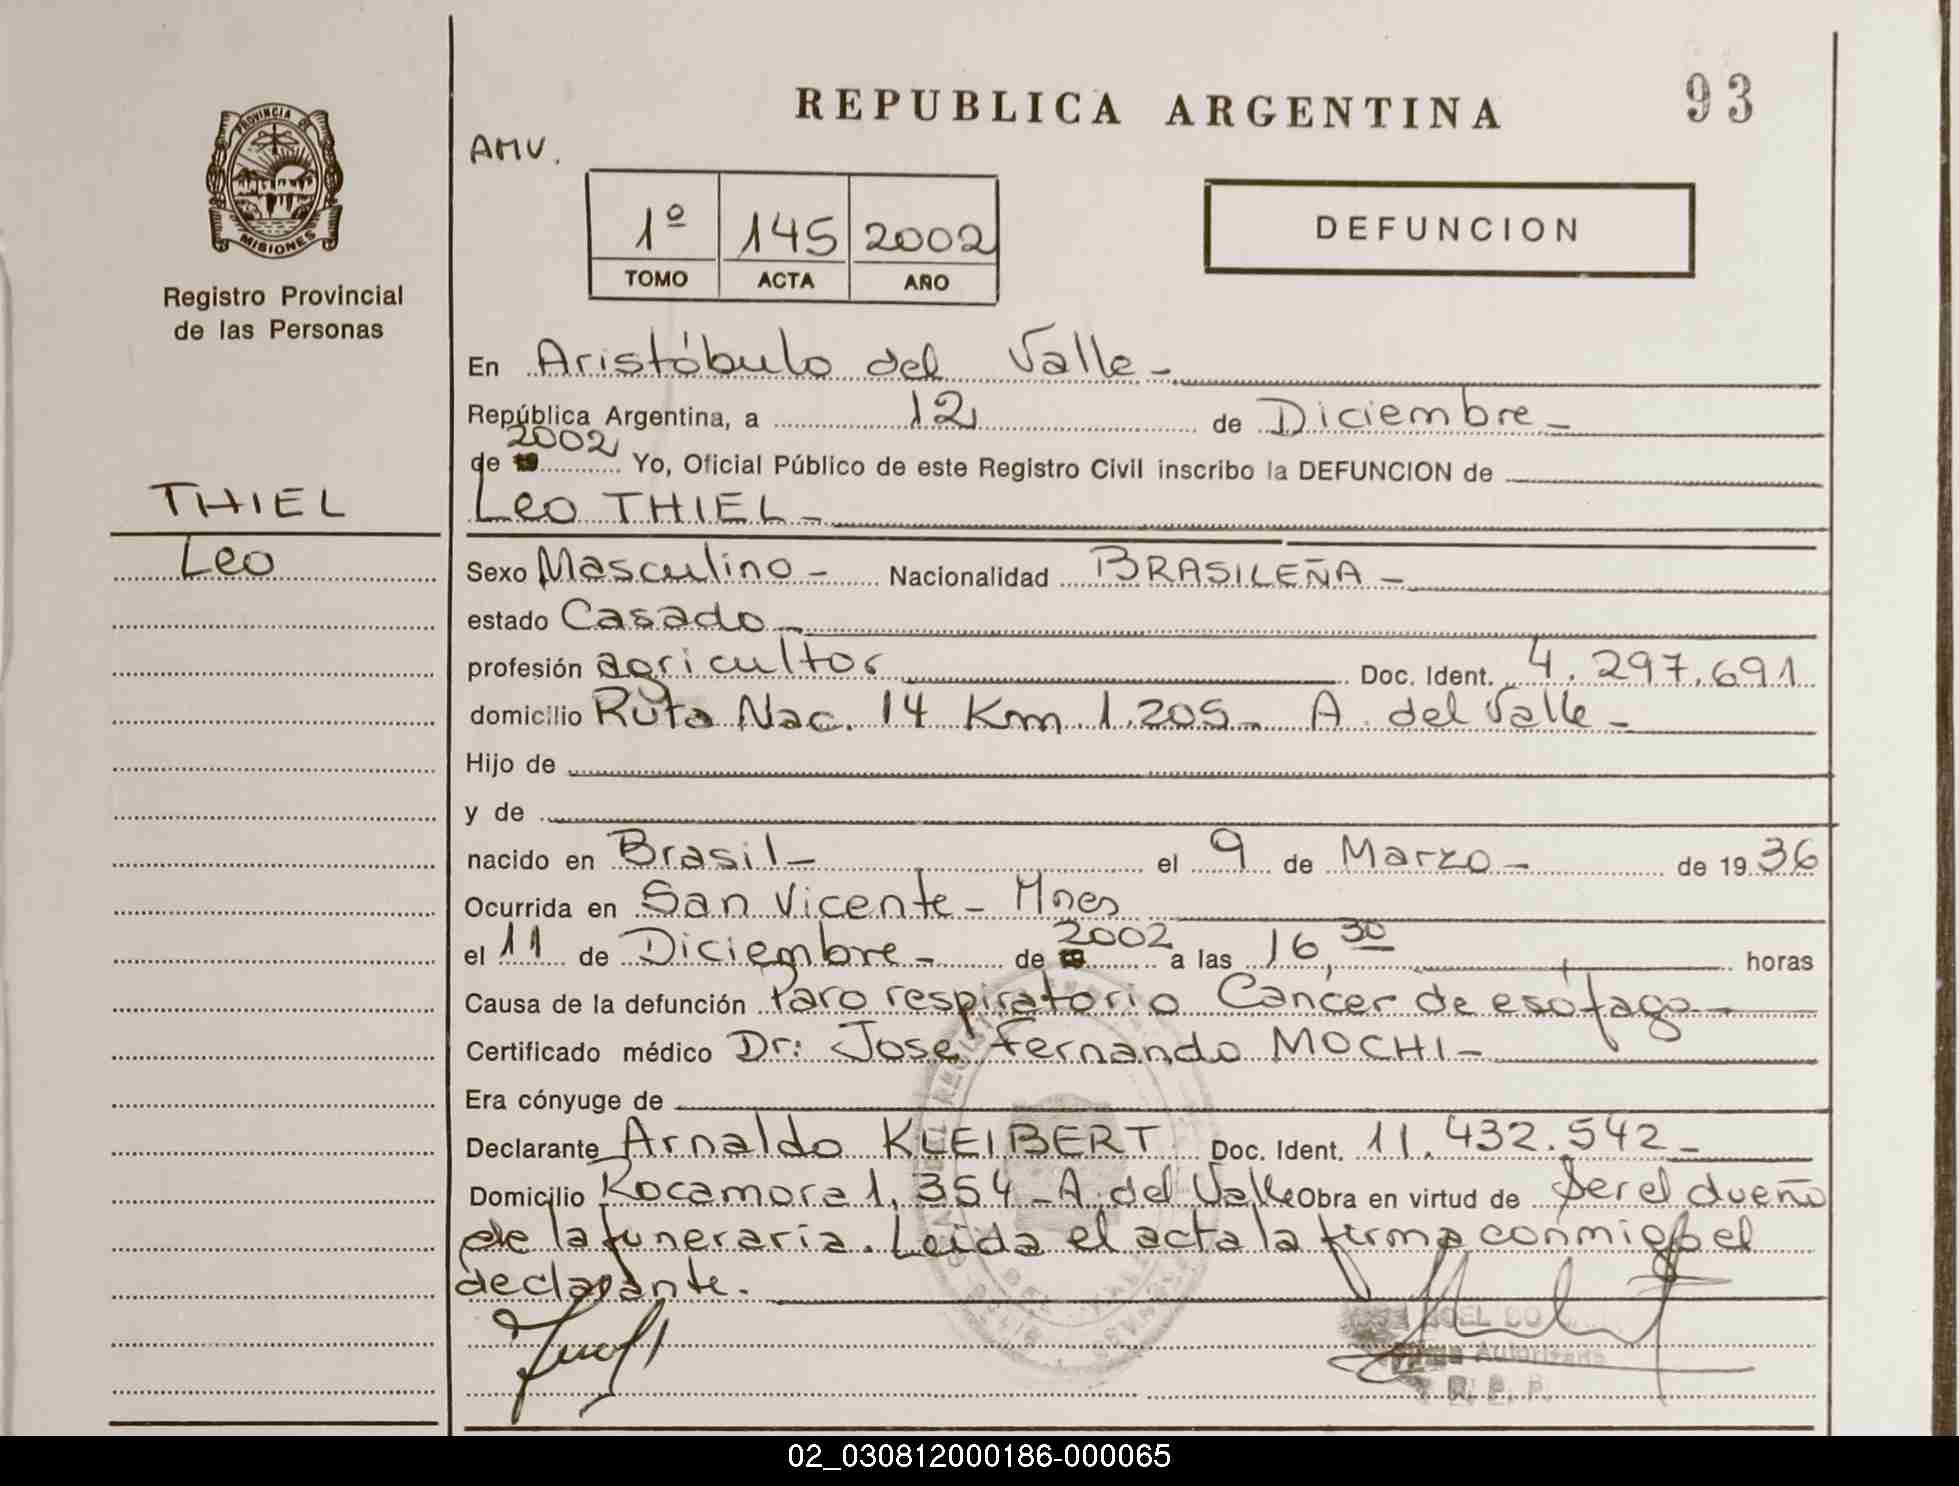 REPUBLICA ARGENTINA
93
AMV.
PROVINCIA DE
MISIONES
Registro Provincial
de las Personas
1º 145 2002
TOMO ACTA AÑO
DEFUNCION
En Aristóbulo del Valle -
República Argentina, a 12 de Diciembre -
2002
de 19 Yo, Oficial Público de este Registro Civil inscribo la DEFUNCION de
Leo THIEL -
THIEL
Leo
Sexo Masculino - Nacionalidad BRASILEÑA -
estado Casado -
profesión agricultor Doc. Ident. 4.297.691
domicilio Ruta Nac. 14 Km 1.205 - A. del Valle -
Hijo de
y de
nacido en Brasil - el 9 de Marzo - de 1936
Ocurrida en San Vicente - Mnes
el 11 de Diciembre - de 2002 a las 16,30 horas
Causa de la defunción Paro respiratorio Cancer de esófago -
Certificado médico Dr: Jose Fernando MOCHI -
Era cónyuge de
Declarante Arnaldo KLEIBERT Doc. Ident. 11.432.542 -
Domicilio Rocamora 1.354 - A. del Valle Obra en virtud de Ser el dueño
de la funeraria. Leida el acta la firma conmigo el
declarante.
R. P. P.
02_030812000186-000065